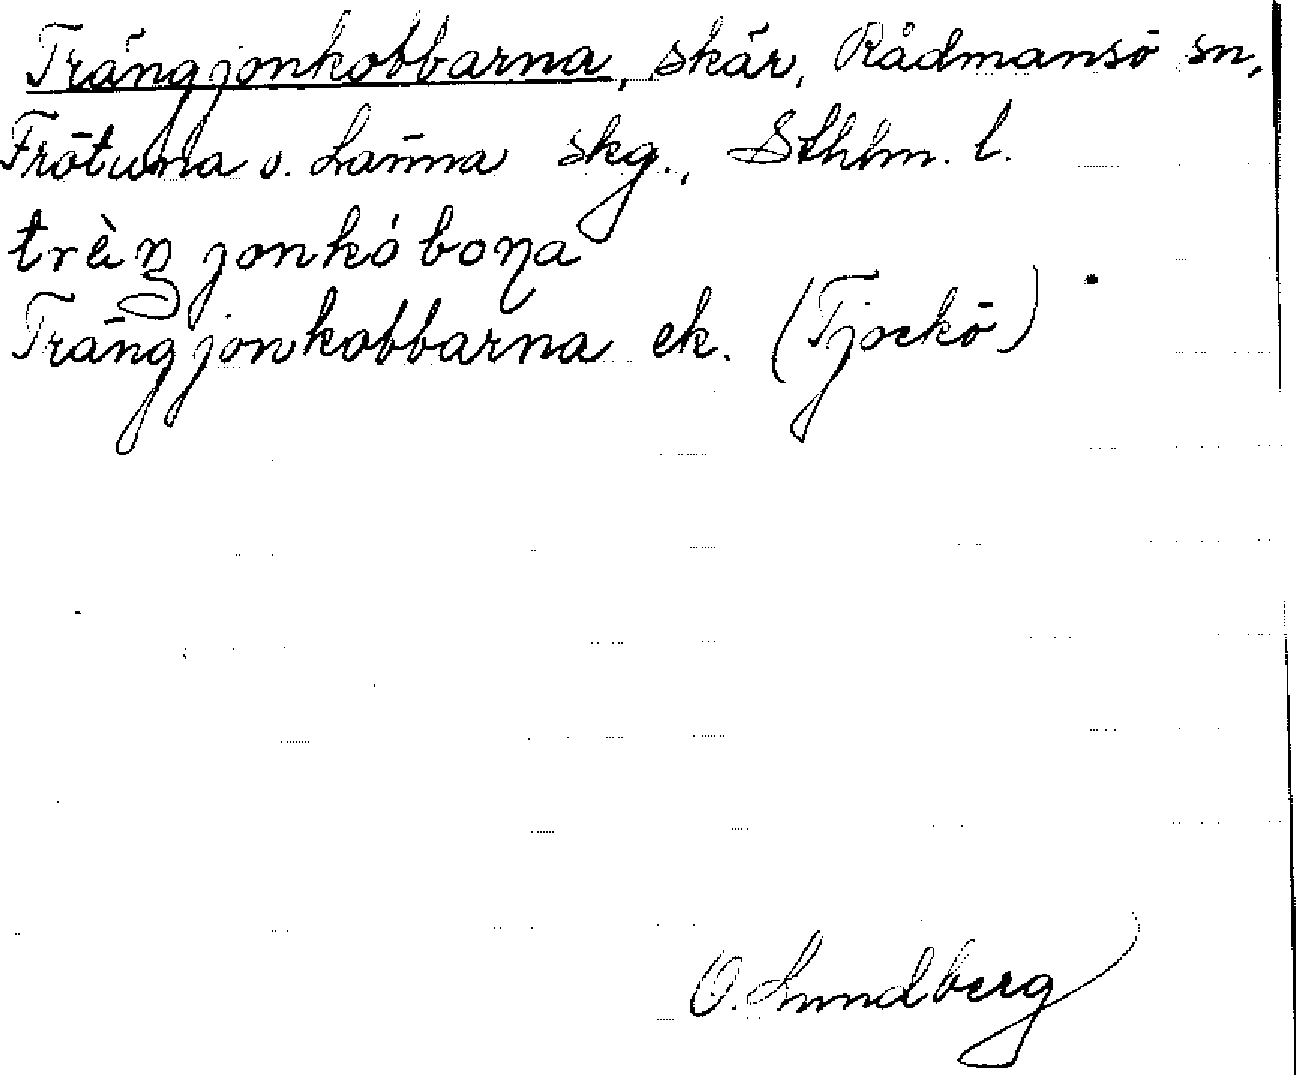 Trängjonkobbarna, skär, Rådmansö sn,
Frötuna o. Länna skg., Sthlm. l.
trèŋjonkóboɳa
Trängjonkobbarna ek. (Tjockö)
O. Lundberg